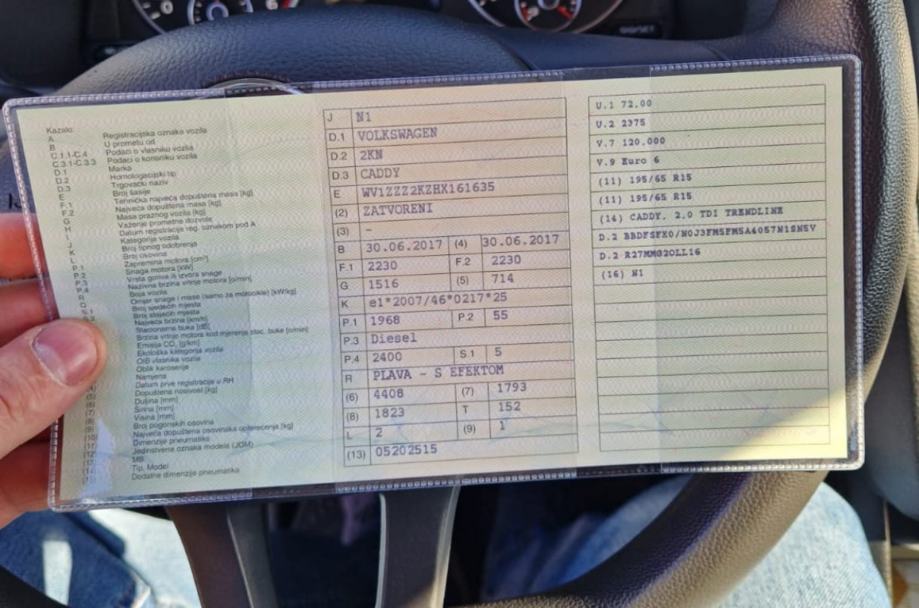 Kazalo:
A Registracijska oznaka vozila
B U prometu od
C.1.1-C.4 Podaci o vlasniku vozila
C.3.1-C.3.3 Podaci o korisniku vozila
D.1 Marka
D.2 Homologacijski tip
D.3 Trgovački naziv
E Broj šasije
F.1 Tehnička najveća dopuštena masa [kg]
F.2 Najveća dopuštena masa [kg]
G Masa praznog vozila [kg]
H Važenje prometne dozvole
I Datum registracije reg. oznakom pod A
J Kategorija vozila
K Broj tipnog odobrenja
L Broj osovina
P.1 Zapremina motora [cm³]
P.2 Snaga motora [kW]
P.3 Vrsta goriva ili izvora snage
P.4 Nazivna brzina vrtnje motora [o/min]
R Boja vozila
Q Omjer snage i mase (samo za motocikle) [kW/kg]
S.1 Broj sjedećih mjesta
Broj stajaćih mjesta
Najveća brzina [km/h]
Stacionarna buka [dB]
Brzina vrtnje motora kod mjerenja stac. buke [o/min]
Emisija CO₂ [g/km]
Ekološka kategorija vozila
OIB vlasnika vozila
Oblik karoserije
Namjena
Datum prve registracije u RH
Dopuštena nosivost [kg]
(6) Duljina [mm]
(7) Širina [mm]
(8) Visina [mm]
(9) Broj pogonskih osovina
(10) Najveća dopuštena osovinska opterećenja [kg]
Dimenzije pneumatika
Jedinstvena oznaka modela (JOM)
MB
Tip, Model
Dodatne dimenzije pneumatika
J N1
D.1 VOLKSWAGEN
D.2 2KN
D.3 CADDY
E WV1ZZZ2KZHX161635
(2) ZATVORENI
(3) -
B 30.06.2017 (4) 30.06.2017
F.1 2230 F.2 2230
G 1516 (5) 714
K e1*2007/46*0217*25
P.1 1968 P.2 55
P.3 Diesel
P.4 2400 S.1 5
R PLAVA - S EFEKTOM
(6) 4408 (7) 1793
(8) 1823 T 152
L 2 (9) 1
(13) 05202515
U.1 72.00
U.2 2375
V.7 120.000
V.9 Euro 6
(11) 195/65 R15
(11) 195/65 R15
(14) CADDY. 2.0 TDI TRENDLINE
D.2
D.2
(16) N1